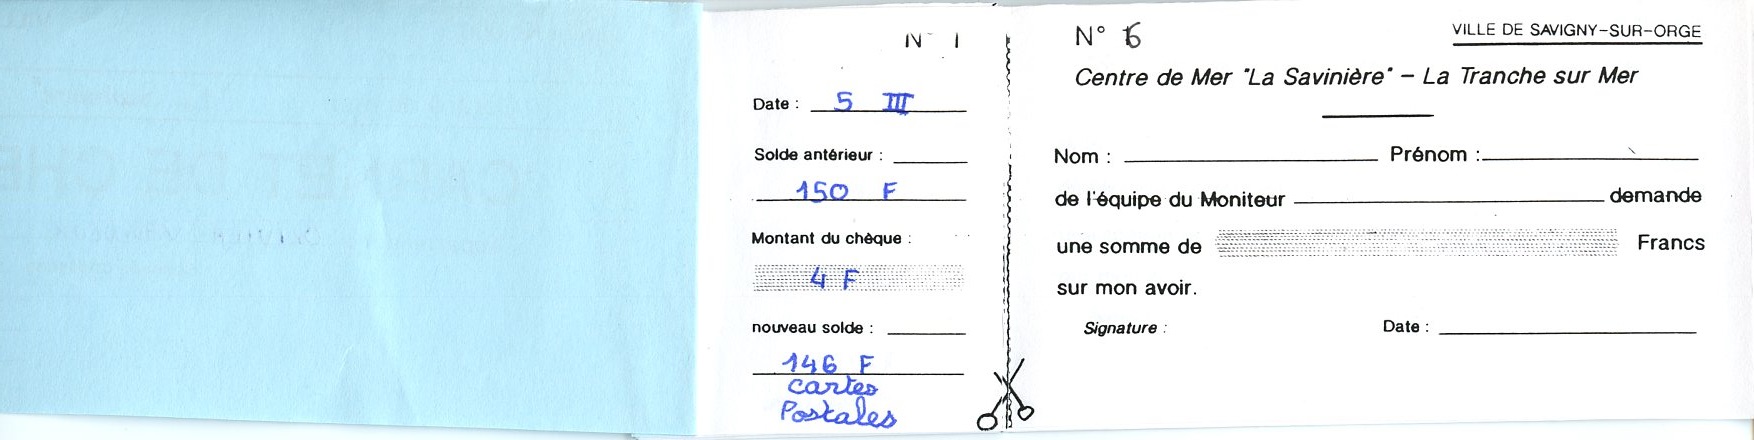 N° 1
Date : 5 III
Solde antérieur :
150 F
Montant du chèque :
4 F
nouveau solde :
146 F
cartes
Postales
N° 6
VILLE DE SAVIGNY-SUR-ORGE
Centre de Mer "La Savinière" - La Tranche sur Mer
Nom : Prénom :
de l'équipe du Moniteur demande
une somme de Francs
sur mon avoir.
Signature : Date :